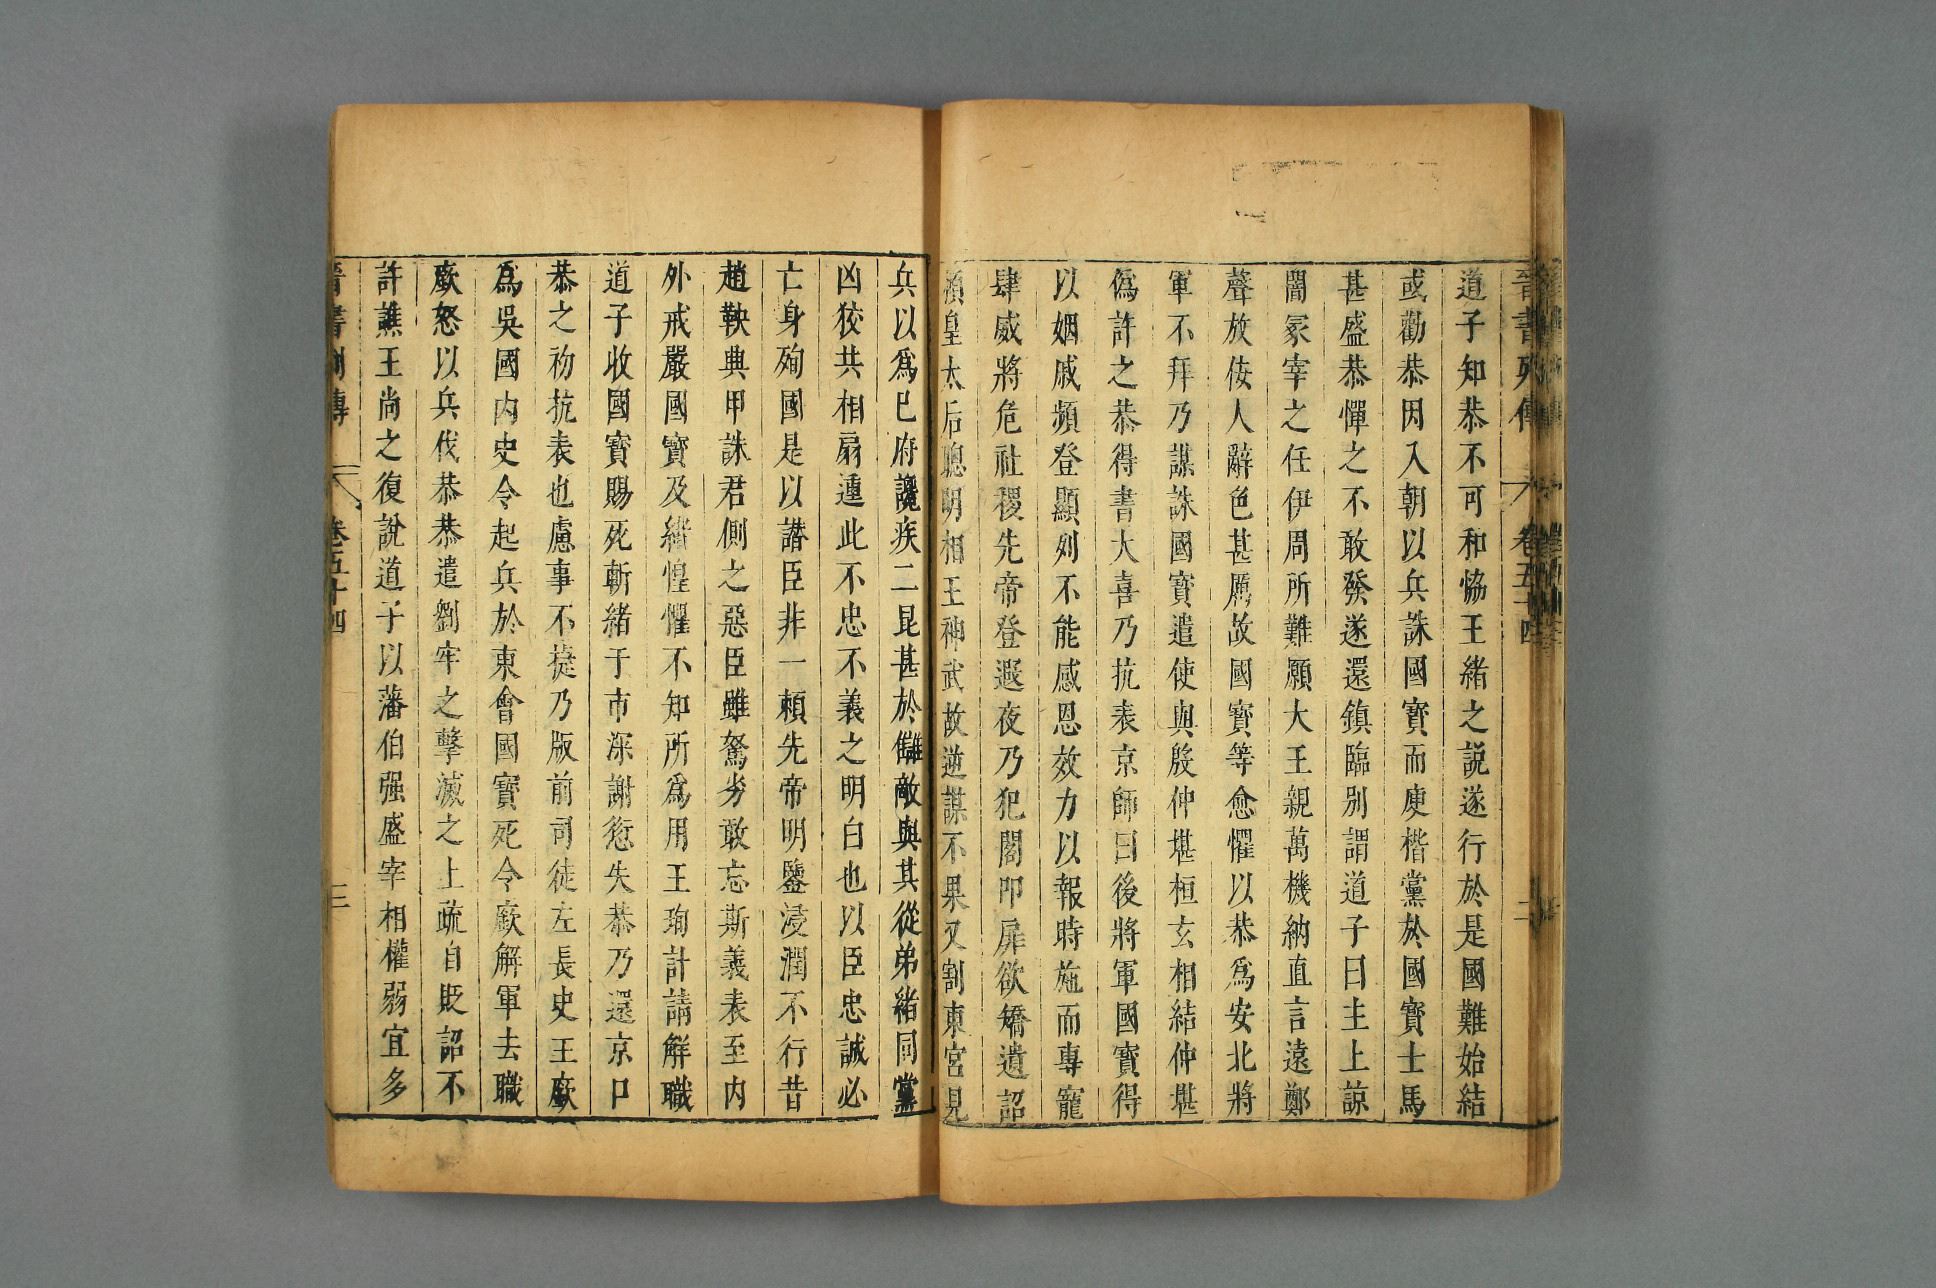 晉書列傳 卷五十四 二
道子知恭不可和協王緒之說遂行於是國難始結
或勸恭因入朝以兵誅國寳而庾楷黨於國寳士馬
甚盛恭憚之不敢發遂還鎮臨別謂道子曰主上諒
闇冡宰之任伊周所難願大王親萬機納直言遠鄭
聲放佞人辭色甚厲故國寳等愈懼以恭爲安北將
軍不拜乃謀誅國寳遣使與殷仲堪桓玄相結仲堪
僞許之恭得書大喜乃抗表京師曰後將軍國寳得
以姻戚頻登顯列不能感恩效力以報時施而專寵
肆威將危社稷先帝登遐夜乃犯閤叩扉欲矯遺詔
賴皇太后聰明相王神武故逆謀不果又割東宮見
兵以爲已府讒疾二昆甚於讎敵與其從弟緒同黨
凶狡共相扇連此不忠不義之明白也以臣忠誠必
亡身殉國是以譖臣非一賴先帝明鑒浸潤不行昔
趙鞅典甲誅君側之惡臣雖駑劣敢忘斯義表至内
外戒嚴國寳及緒惶懼不知所爲用王珣計請解職
道子收國寳賜死斬緒于市深謝愆失恭乃還京口
恭之初抗表也慮事不捷乃版前司徒左長史王廞
爲吳國内史令起兵於東會國寳死令廞解軍去職
廞怒以兵伐恭恭遣劉牢之擊滅之上疏自貶詔不
許譙王尚之復說道子以藩伯强盛宰相權弱宜多
晉書列傳 卷五十四 三